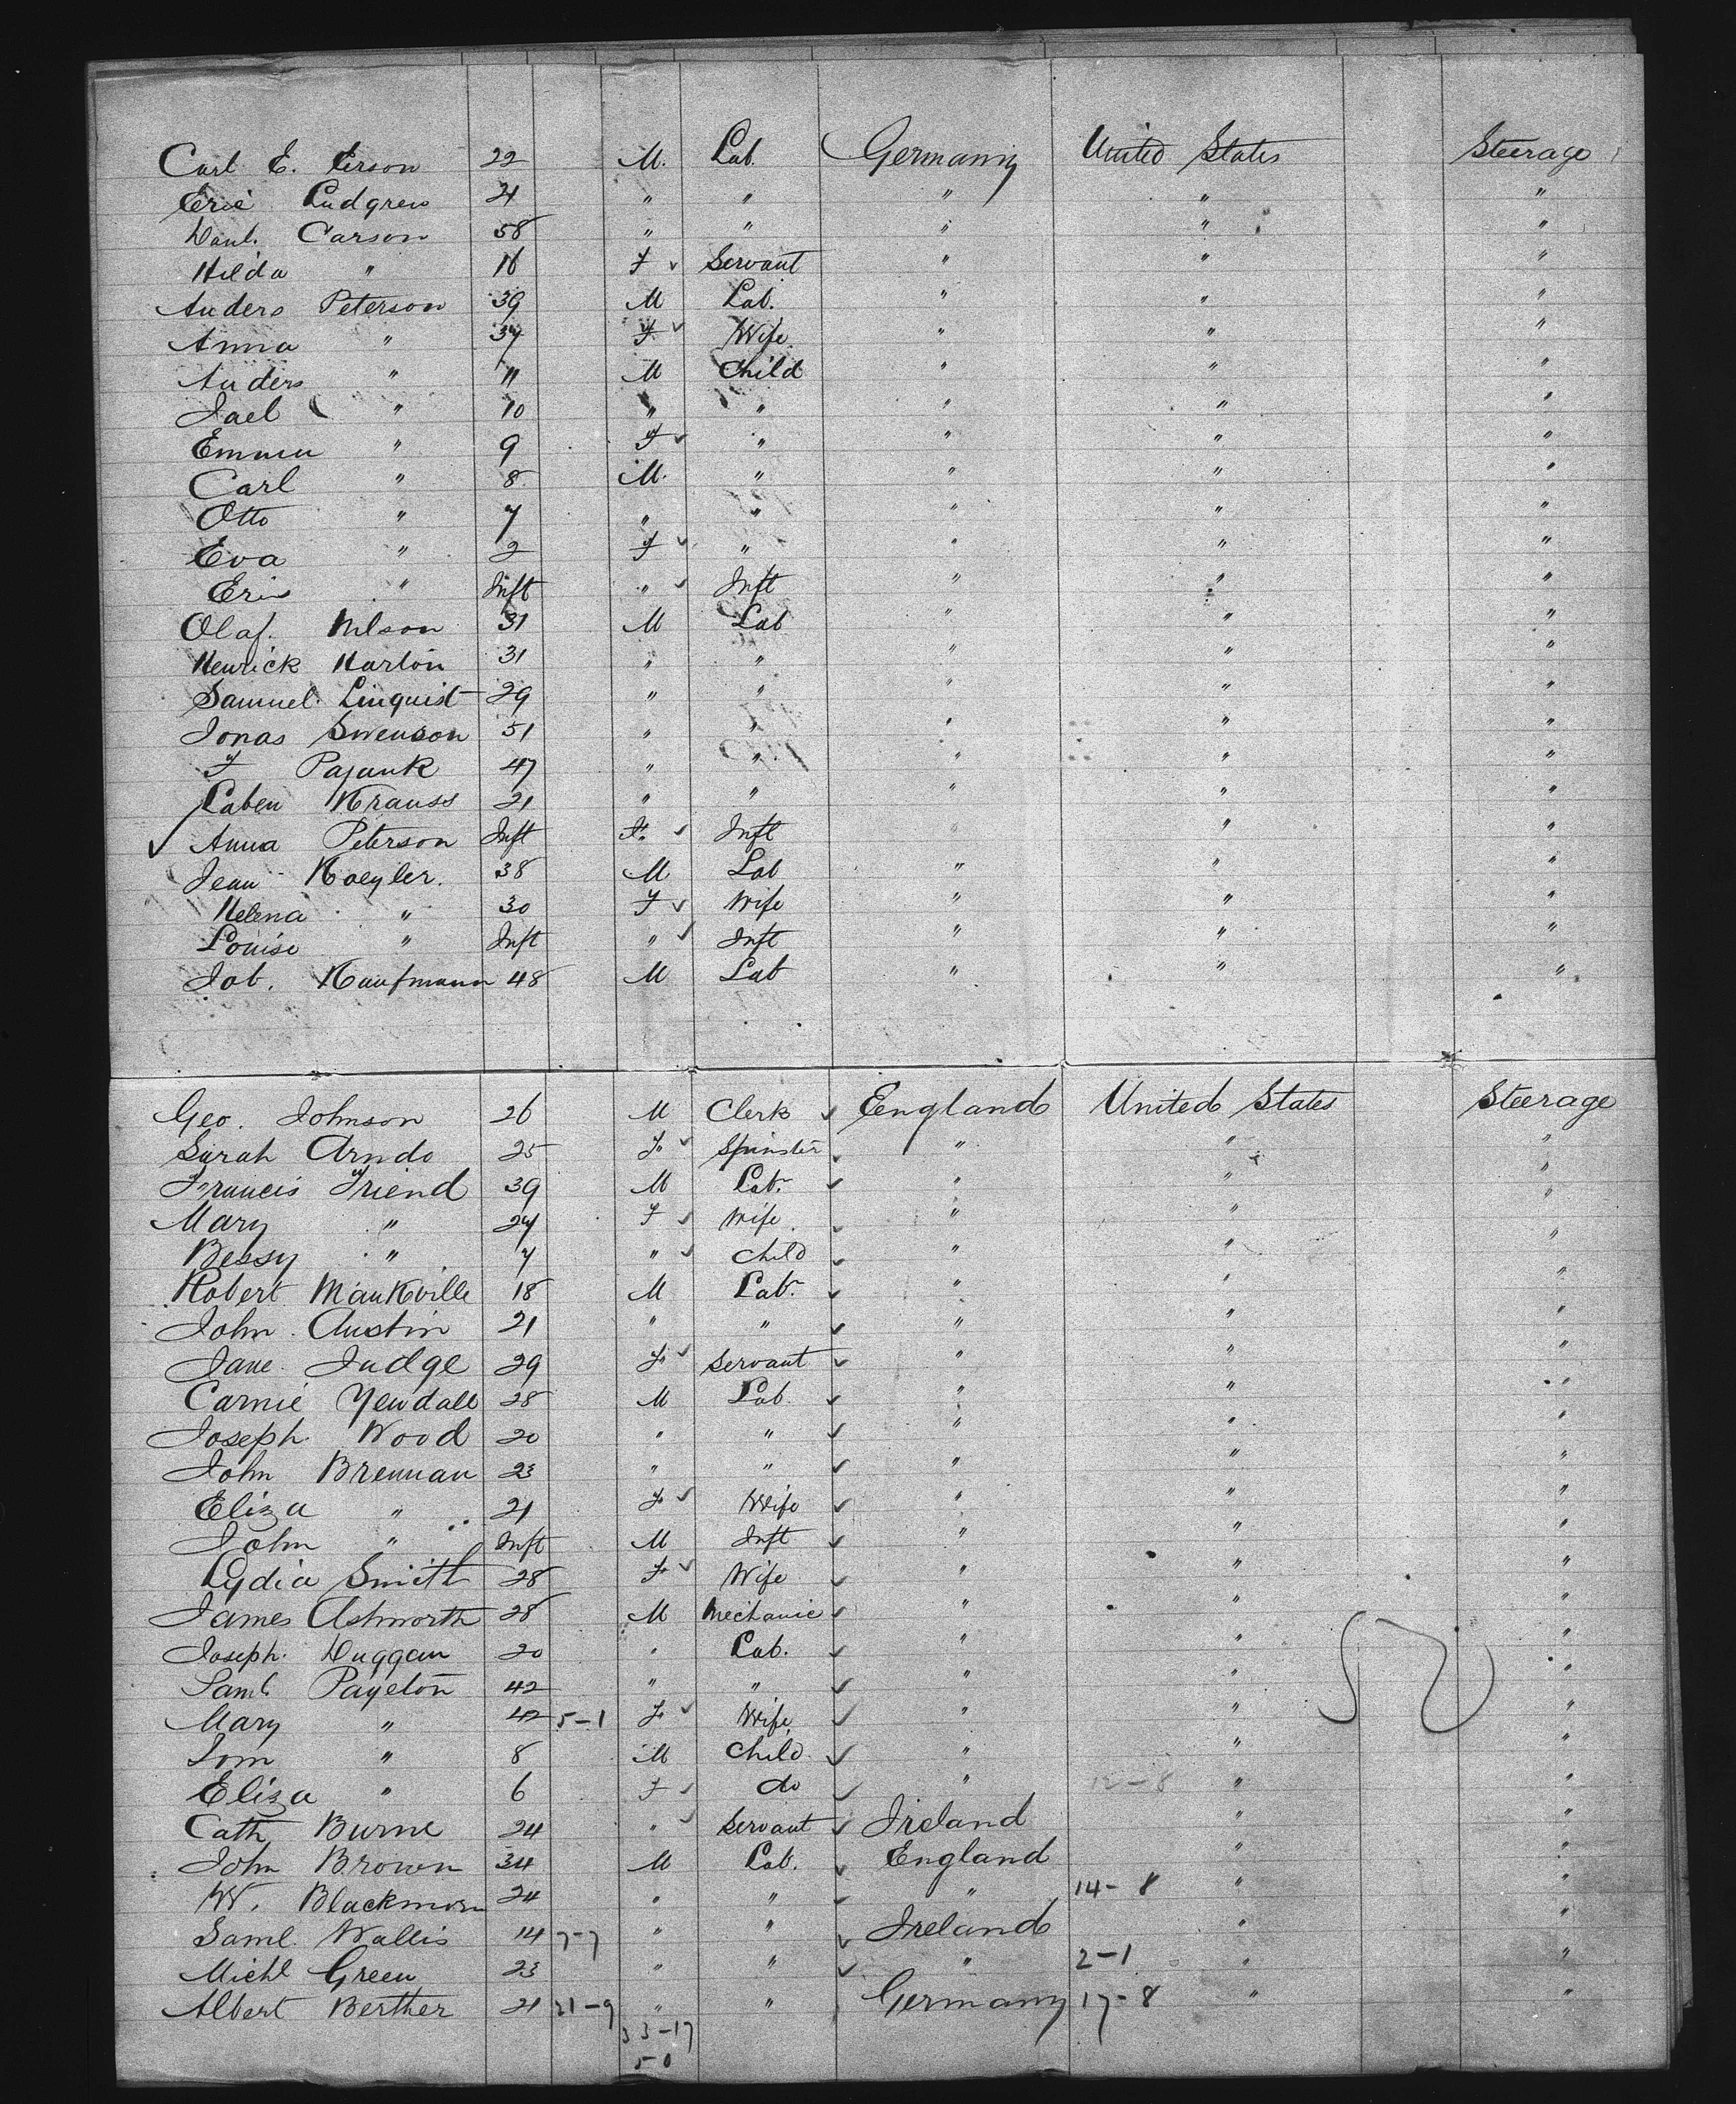 Carl E. Person 22 M. Lab. Germany United States Steerage
Eric Ludgren 21 " " " " "
Danl. Carson 58 " " " " "
Hilda " 16 F Servant " " "
Anders Peterson 39 M Lab. " " "
Anna " 34 F Wife " " "
Anders " 11 M Child " " "
Jael " 10 " " " " "
Emma " 9 F " " " "
Carl " 8 M. " " " "
Otto " 7 " " " " "
Eva " 2 F " " " "
Eric " Inft " Inft " " "
Olaf. Nilson 31 M Lab " " "
Henrick Harlon 31 " " " " "
Samuel Linquist 29 " " " " "
Jonas Swenson 51 " " " " "
F Pajank 47 " " " " "
Laben Krauss 21 " " " " "
Anna Peterson Inft F. Inft " " "
Jean Koegler. 38 M Lab " " "
Helena " 30 F Wife " " "
Louise " Inft " Inft " " "
Job. Kaufmann 48 M Lab " " "
Geo. Johnson 26 M Clerk England United States Steerage
Sarah Arndo 25 F. Spinster " " "
Francis Friend 39 M Lab. " " "
Mary " 24 F Wife " " "
Bessy " 7 " Child " " "
Robert Mankville 18 M Lab. " " "
John Austin 21 " " " " "
Jane Judge 29 F. Servant " " "
Carnie Yewdall 28 M Lab. " " "
Joseph Wood 20 " " " " "
John Brennan 23 " " " " "
Eliza " 21 F. Wife " " "
John " Inft M Inft " " "
Lydia Smith 28 F Wife " " "
James Ashworth 28 M Mechanic " " "
Joseph. Duggan 20 " Lab. " " "
Saml. Payeton 42 " " " " "
Mary " 42 5-1 F. Wife " " "
Tom " 8 M Child " " "
Eliza " 6 F do " 12-8 " "
Cath Burne 24 " Servant Ireland " "
John Brown 34 M Lab. England " "
W. Blackmore 24 " " " 14-8 " "
Saml. Wallis 14 7-7 " " Ireland " "
Michl Green 23 " " " 2-1 " "
Albert Berther 21 21-9 " " Germany 17-8 " "
33-17
5-0